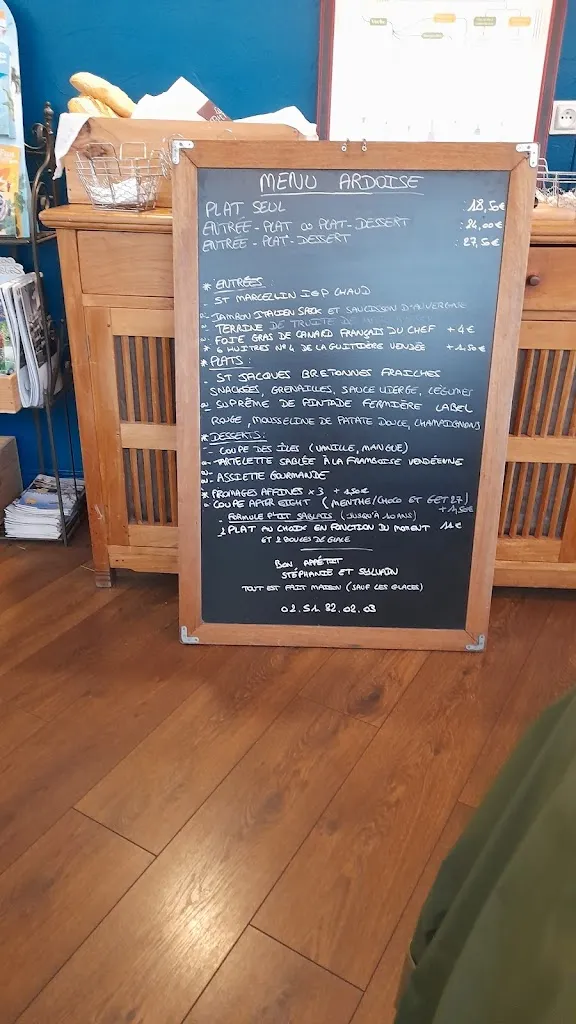 MENU ARDOISE
PLAT SEUL : 18,50€
ENTRÉE - PLAT OO PLAT - DESSERT : 24,00€
ENTRÉE - PLAT - DESSERT : 27,50€
* ENTRÉES :
- ST MARCELLIN IGP CHAUD
- JAMBON ITALIEN SPECK ET SAUCISSON D'AUVERGNE
- TERRINE DE TRUITE DE
- FOIE GRAS DE CANARD FRANÇAIS DU CHEF + 4€
* 6 HUITRES N°4 DE LA GUITTIÈRE VENDÉE + 1,50€
* PLATS :
- ST JACQUES BRETONNES FRAICHES
SNACKÉES, GRENAILLES, SAUCE VIERGE, LÉGUMES
- SUPRÊME DE PINTADE FERMIÈRE LABEL
ROUGE, MOUSSELINE DE PATATE DOUCE, CHAMPIGNONS
* DESSERTS :
- COUPE DES ÎLES (VANILLE, MANGUE)
- TARTELETTE SABLÉE À LA FRAMBOISE VENDÉENNE
- ASSIETTE GOURMANDE
* FROMAGES AFFINÉS x 3 + 1,50€
- COUPE AFTER EIGHT (MENTHE/CHOCO ET GET 27) + 1,50€
- FORMULE P'TIT SABLAIS (JUSQU'À 10 ANS)
1 PLAT AU CHOIX EN FONCTION DU MOMENT 11€
ET 2 BOULES DE GLACE
BON APPÉTIT
STÉPHANIE ET SYLVAIN
TOUT EST FAIT MAISON (SAUF LES GLACES)
02.51.32.02.03